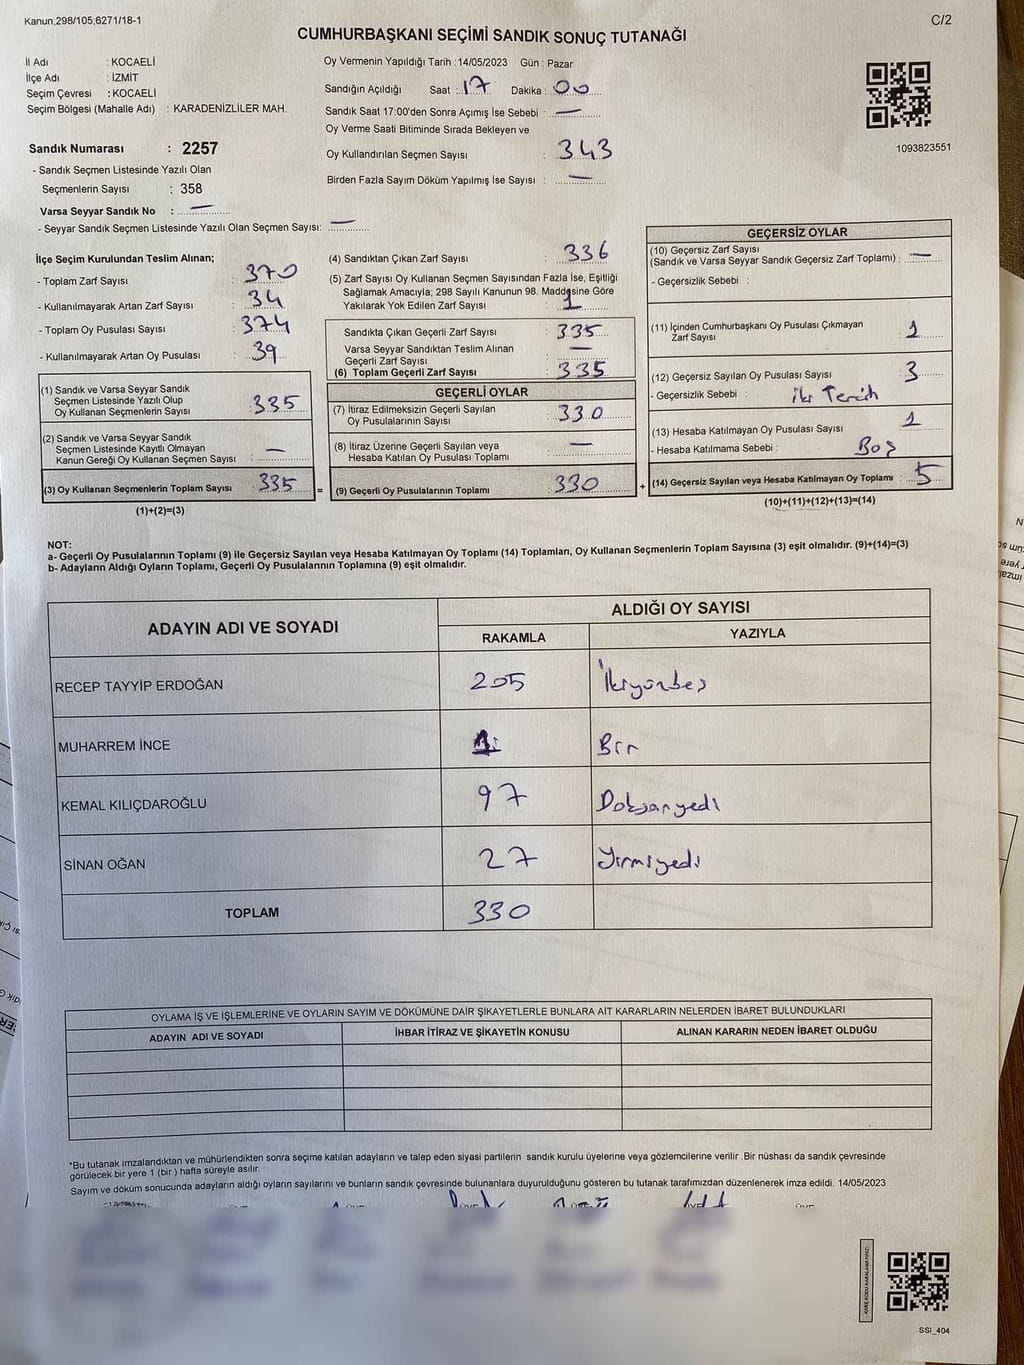 Kanun,298/105,6271/18-1
C/2
CUMHURBAŞKANI SEÇİMİ SANDIK SONUÇ TUTANAĞI
İl Adı : KOCAELİ
İlçe Adı : İZMİT
Seçim Çevresi : KOCAELİ
Seçim Bölgesi (Mahalle Adı) : KARADENİZLİLER MAH.
Sandık Numarası : 2257
- Sandık Seçmen Listesinde Yazılı Olan
Seçmenlerin Sayısı : 358
Varsa Seyyar Sandık No : —
- Seyyar Sandık Seçmen Listesinde Yazılı Olan Seçmen Sayısı: —
Oy Vermenin Yapıldığı Tarih :14/05/2023 Gün : Pazar
Sandığın Açıldığı Saat : 17 Dakika : 00
Sandık Saat 17:00'den Sonra Açımış İse Sebebi : —
Oy Verme Saati Bitiminde Sırada Bekleyen ve
Oy Kullandırılan Seçmen Sayısı : 343
Birden Fazla Sayım Döküm Yapılmış İse Sayısı : —
1093823551
İlçe Seçim Kurulundan Teslim Alınan;
- Toplam Zarf Sayısı : 370
- Kullanılmayarak Artan Zarf Sayısı : 34
- Toplam Oy Pusulası Sayısı : 374
- Kullanılmayarak Artan Oy Pusulası : 39
(1) Sandık ve Varsa Seyyar Sandık
Seçmen Listesinde Yazılı Olup
Oy Kullanan Seçmenlerin Sayısı : 335
(2) Sandık ve Varsa Seyyar Sandık
Seçmen Listesinde Kayıtlı Olmayan
Kanun Gereği Oy Kullanan Seçmen Sayısı : —
(3) Oy Kullanan Seçmenlerin Toplam Sayısı : 335
(1)+(2)=(3)
(4) Sandıktan Çıkan Zarf Sayısı : 336
(5) Zarf Sayısı Oy Kullanan Seçmen Sayısından Fazla İse, Eşitliği
Sağlamak Amacıyla; 298 Sayılı Kanunun 98. Maddesine Göre
Yakılarak Yok Edilen Zarf Sayısı : 1
Sandıkta Çıkan Geçerli Zarf Sayısı : 335
Varsa Seyyar Sandıktan Teslim Alınan
Geçerli Zarf Sayısı : —
(6) Toplam Geçerli Zarf Sayısı : 335
GEÇERLİ OYLAR
(7) İtiraz Edilmeksizin Geçerli Sayılan
Oy Pusulalarının Sayısı : 330
(8) İtiraz Üzerine Geçerli Sayılan veya
Hesaba Katılan Oy Pusulası Toplamı : —
= (9) Geçerli Oy Pusulalarının Toplamı : 330
GEÇERSİZ OYLAR
(10) Geçersiz Zarf Sayısı
(Sandık ve Varsa Seyyar Sandık Geçersiz Zarf Toplamı) : —
- Geçersizlik Sebebi :
(11) İçinden Cumhurbaşkanı Oy Pusulası Çıkmayan
Zarf Sayısı : 1
(12) Geçersiz Sayılan Oy Pusulası Sayısı : 3
- Geçersizlik Sebebi : iki Tercih
(13) Hesaba Katılmayan Oy Pusulası Sayısı : 1
- Hesaba Katılmama Sebebi : Boş
+ (14) Geçersiz Sayılan veya Hesaba Katılmayan Oy Toplamı : 5
(10)+(11)+(12)+(13)=(14)
NOT:
a- Geçerli Oy Pusulalarının Toplamı (9) ile Geçersiz Sayılan veya Hesaba Katılmayan Oy Toplamı (14) Toplamları, Oy Kullanan Seçmenlerin Toplam Sayısına (3) eşit olmalıdır. (9)+(14)=(3)
b- Adayların Aldığı Oyların Toplamı, Geçerli Oy Pusulalarının Toplamına (9) eşit olmalıdır.
ADAYIN ADI VE SOYADI
ALDIĞI OY SAYISI
RAKAMLA YAZIYLA
RECEP TAYYİP ERDOĞAN 205 İkiyüzbeş
MUHARREM İNCE 1 Bir
KEMAL KILIÇDAROĞLU 97 Doksanyedi
SİNAN OĞAN 27 Yirmiyedi
TOPLAM 330
OYLAMA İŞ VE İŞLEMLERİNE VE OYLARIN SAYIM VE DÖKÜMÜNE DAİR ŞİKAYETLERLE BUNLARA AİT KARARLARIN NELERDEN İBARET BULUNDUKLARI
ADAYIN ADI VE SOYADI İHBAR İTİRAZ VE ŞİKAYETİN KONUSU ALINAN KARARIN NEDEN İBARET OLDUĞU
*Bu tutanak imzalandıktan ve mühürlendikten sonra seçime katılan adayların ve talep eden siyasi partilerin sandık kurulu üyelerine veya gözlemcilerine verilir .Bir nüshası da sandık çevresinde
görülecek bir yere 1 (bir ) hafta süreyle asılır.
Sayım ve döküm sonucunda adayların aldığı oyların sayılarını ve bunların sandık çevresinde bulunanlara duyurulduğunu gösteren bu tutanak tarafımızdan düzenlenerek imza edildi. 14/05/2023
SSI_404